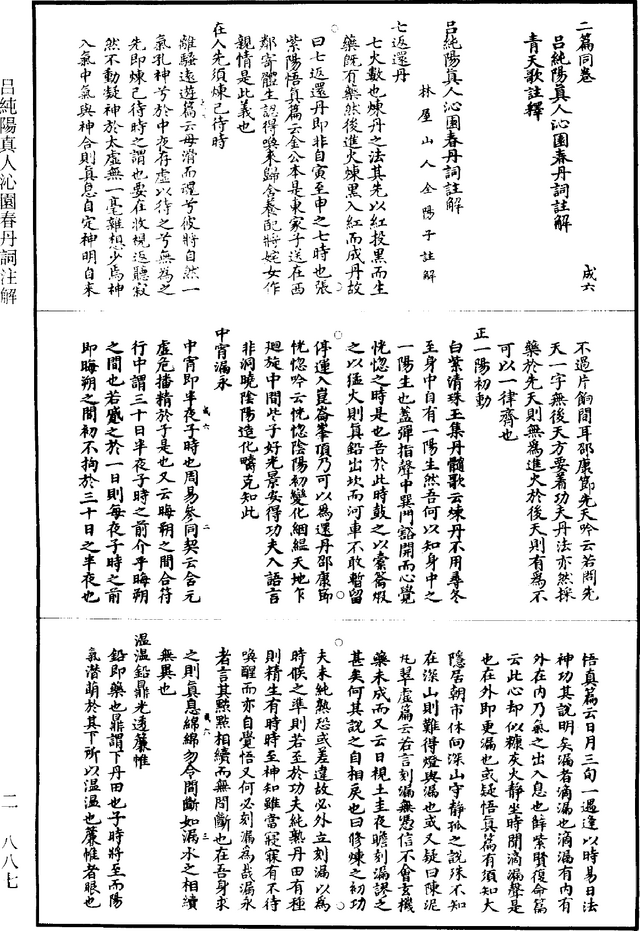 二篇同卷
呂純陽真人沁園春丹詞註解
青天歌註釋
成六
呂純陽真人沁園春丹詞註解
林屋山人全陽子註解
七返還丹
七火數也煉丹之法其先以紅投黑而生
藥既有藥然後進火煉黑入紅而成丹故
曰七返還丹即非自寅至申之七時也張
紫陽悟真篇云金公本是東家子送在西
鄰寄體生認得喚來歸舍養配將姹女作
親情是此義也
在人先須煉己待時
離騷遠遊篇云毋滑而魂兮彼將自然一
氣孔神兮於中夜存虛以待之兮無為之
先即煉己待時之謂也要在收視返聽寂
然不動凝神於太虛無一毫雜想少焉神
入氣中氣與神合則真息自定神明自來
不過片餉間耳邵康節先天吟云若問先
天一字無後天方要着功夫丹法亦然採
藥於先天則無為進火於後天則有為不
可以一律齊也
正一陽初動
白紫清珠玉集丹髓歌云煉丹不用尋冬
至身中自有一陽生然吾何以知身中之
一陽生也蓋彈指聲中巽門豁開而心覺
恍惚之時是也吾於此時鼓之以橐籥煅
之以猛火則真鉛出坎而河車不敢暫留
停運入崑崙峯頂乃可以為還丹邵康節
恍惚吟云恍惚陰陽初變化絪縕天地乍
迴旋中間些子好光景安得功夫入語言
非洞曉陰陽造化疇克知此
中宵漏永
中宵即半夜子時也周易參同契云含元
虛危播精於子是也又云晦朔之間合符
行中謂三十日半夜子時之前介乎晦朔
之間也若蹙之於一日則每夜子時之前
即晦朔之間初不拘於三十日之半夜也
成六
二
悟真篇云日月三旬一遇逢以時易日法
神功其說明矣漏者滴漏也滴漏有內有
外在內乃氣之出入息也薛紫賢復命篇
云此心却似糠灰火靜坐時聞滴漏聲是
也在外即更漏也或疑悟真篇有須知大
隱居朝市休問深山守靜孤之說殊不知
在深山則難得燈與漏也或又疑曰陳泥
丸翠虛篇云若言刻漏無憑信不會玄機
藥未成而又云日視土圭夜瞻刻漏謬之
甚矣何其說之自相戾也曰修煉之初功
夫未純熟恐或差違故必外立刻漏以為
時候之準則若至於功夫純熟丹田有種
則精生有時時至神知雖當寢寐有不待
喚醒而亦自覺悟又何必刻漏為哉漏永
者言其黙黙相續而無間斷也在吾身求
之則真息綿綿勿令間斷如漏水之相續
無異也
溫溫鉛鼎光透簾帷
鉛即藥也鼎謂下丹田也子時將至而陽
氣潜萌於其下所以溫溫也簾帷者眼也
成六
三
呂純陽真人沁園春丹詞注解
二一八八七